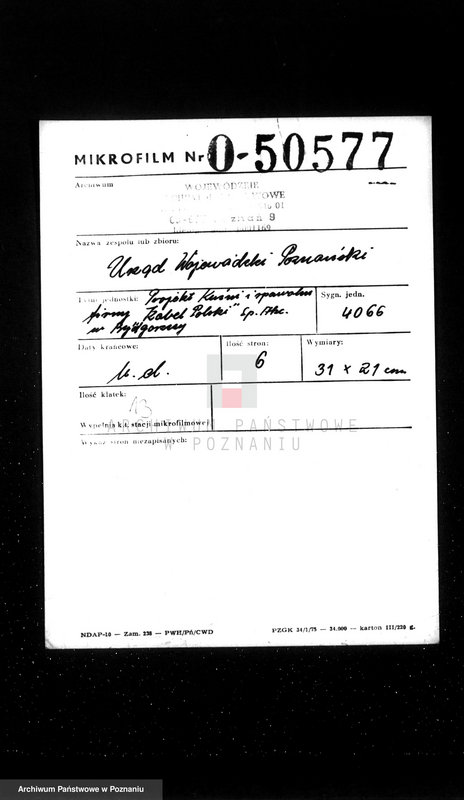 MIKROFILM Nr O-50577
Archiwum
WOJEWÓDZKIE
Nazwa zespołu lub zbioru:
Urząd Wojewódzki Poznański
Tytuł jednostki: Projekt Kuźni i spawalni
firmy "Kabel Polski" Sp. Akc.
w Bydgoszczy
Sygn. jedn.
4066
Daty krańcowe:
b. d.
Ilość stron:
6
Wymiary:
31 x 21 cm
Ilość klatek:
13
Wypełnia k.t. stacji mikrofilmowej
ARCHIWUM PAŃSTWOWE
W POZNANIU
Wykaz stron niezapisanych:
NDAP-10 — Zam. 238 — PWH/Pń/CWD
PZGK 34/1/75 — 34.000 — karton III/220 g.
Archiwum Państwowe w Poznaniu